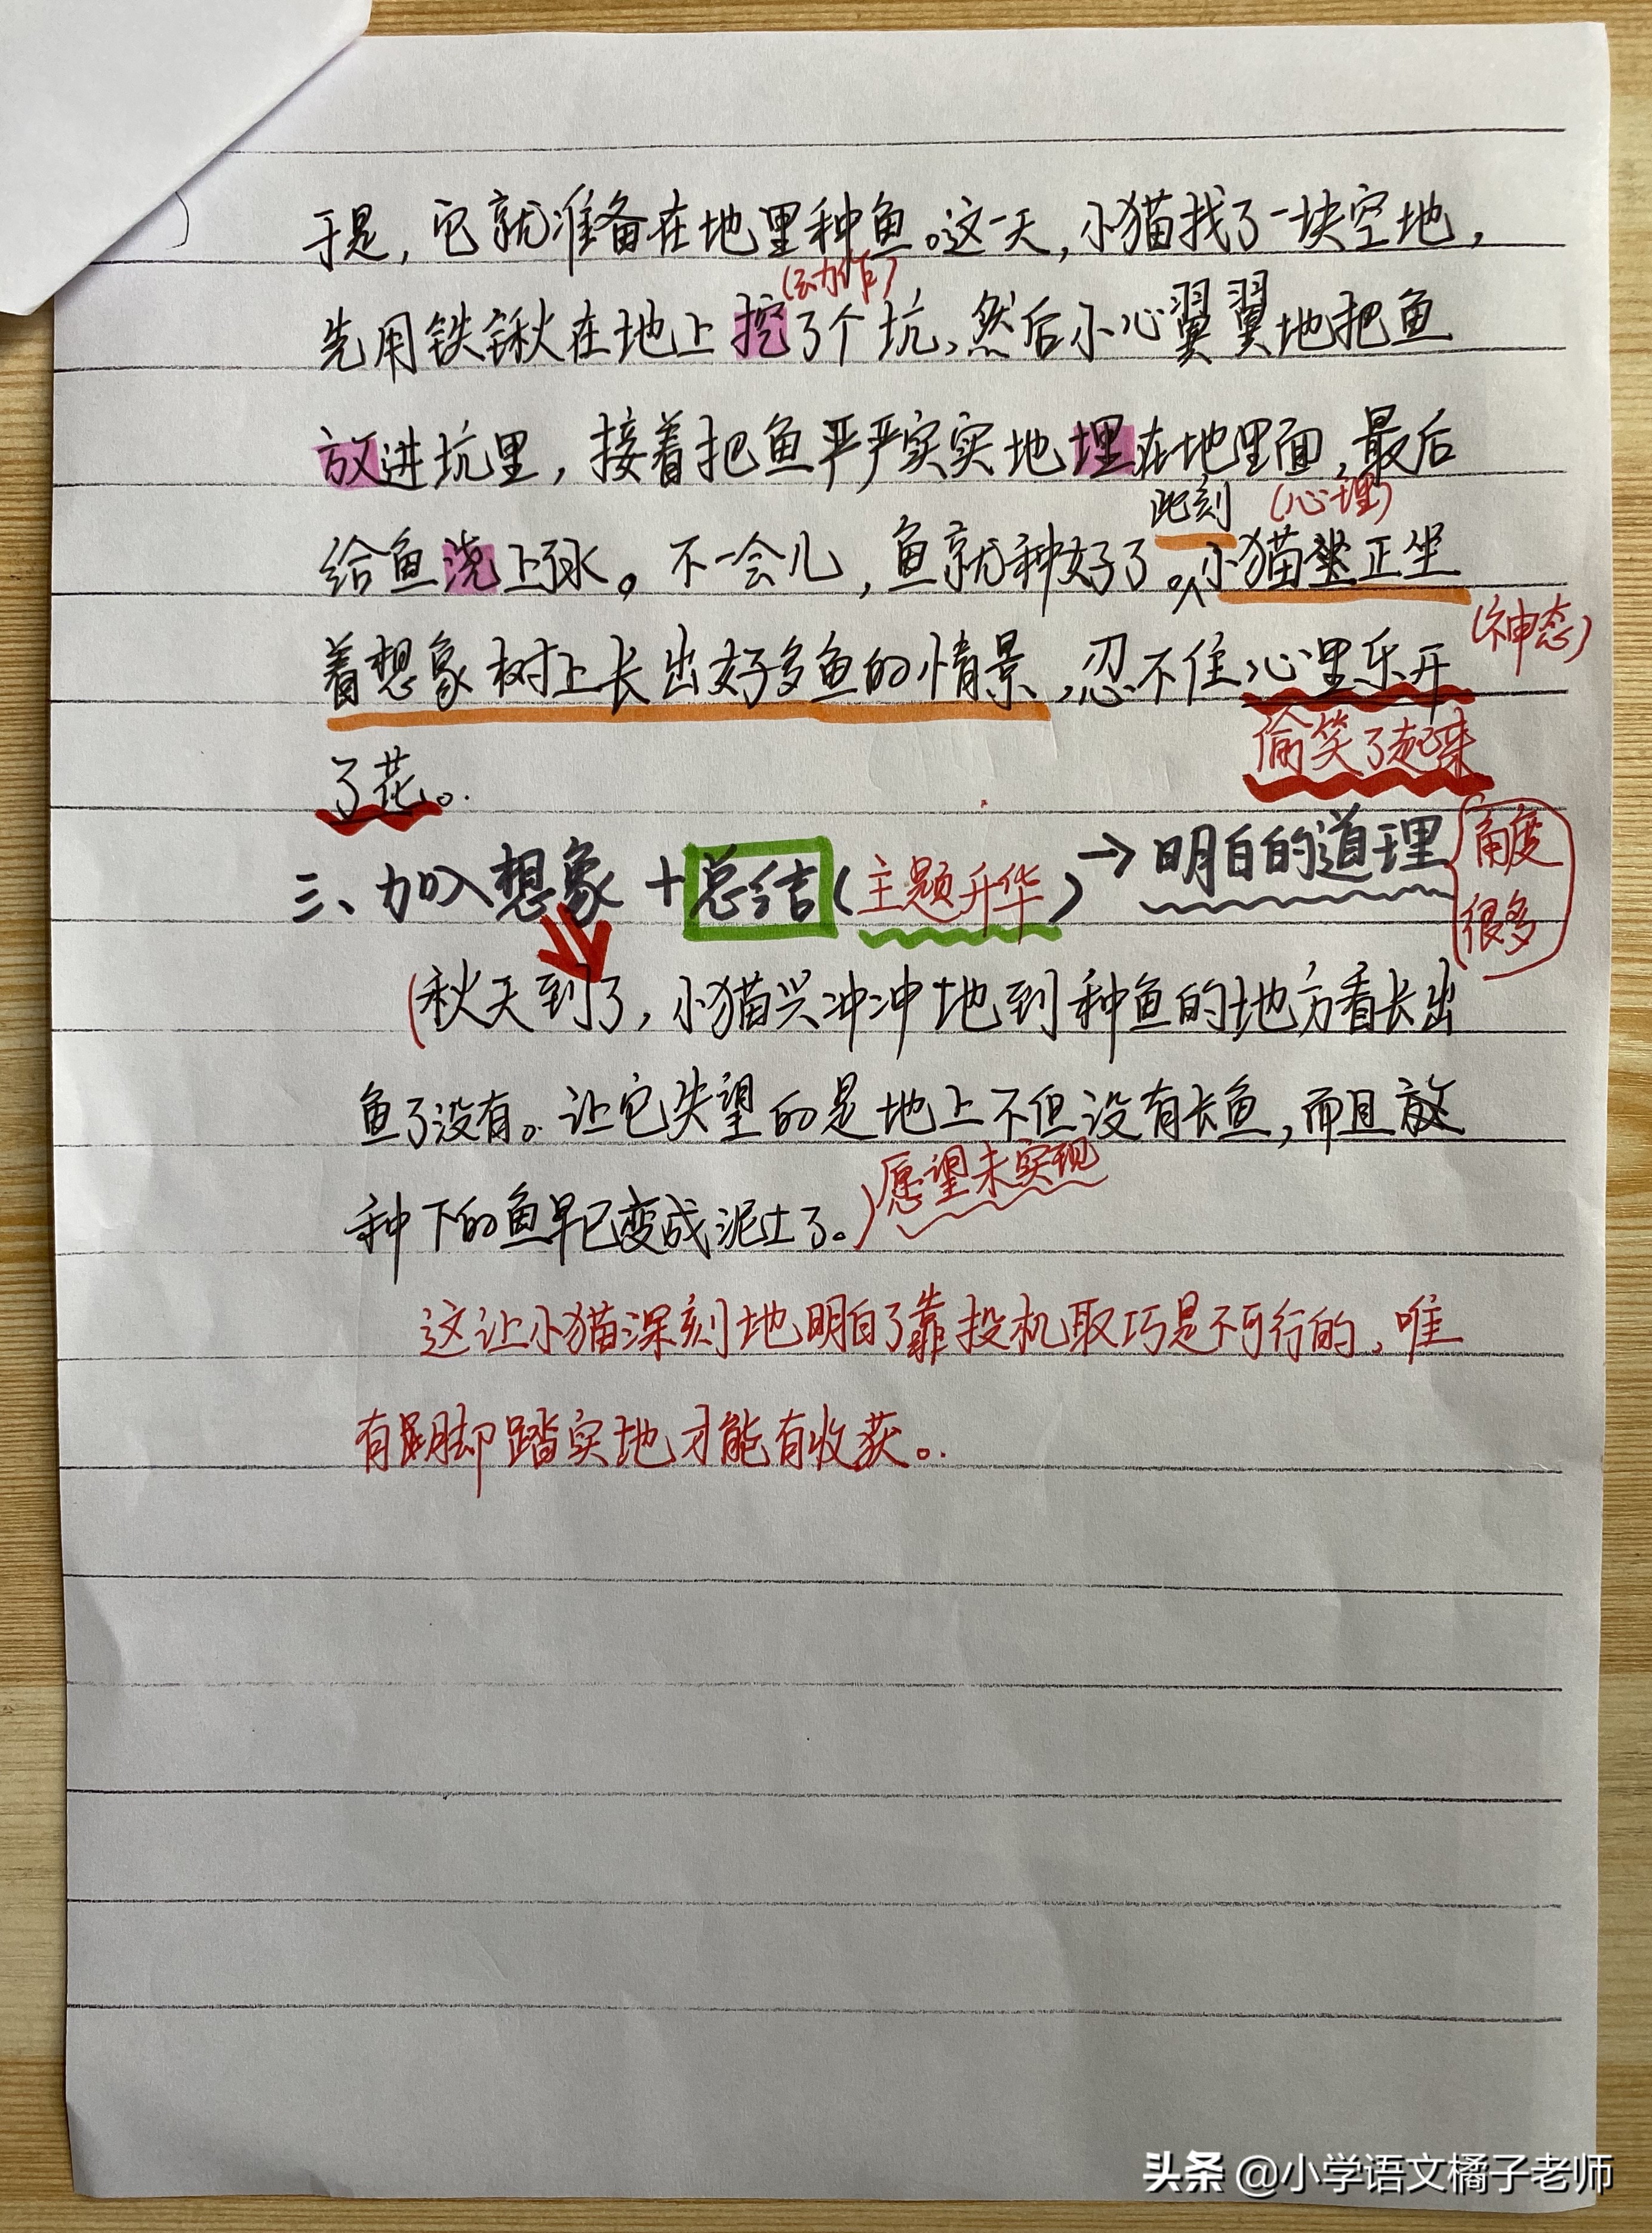 于是，它就准备在地里种鱼。这一天，小猫找了一块空地，
(动作)
先用铁锹在地上挖了个坑，然后小心翼翼地把鱼
放进坑里，接着把鱼严严实实地埋在地里面，最后
此刻 (心理)
给鱼浇上水。不一会儿，鱼就种好了。小猫正坐
(神态)
着想象树上长出好多鱼的情景，忍不住心里乐开
偷笑了起来
了花。
三、加入想象+总结(主题升华)→明白的道理
角度
很多
(秋天到了，小猫兴冲冲地到种鱼的地方看长出
鱼了没有。让它失望的是地上不但没有长鱼，而且放
种下的鱼早已变成泥土了。)愿望未实现
这让小猫深刻地明白了靠投机取巧是不可行的，唯
有脚踏实地才能有收获。
头条 @小学语文橘子老师